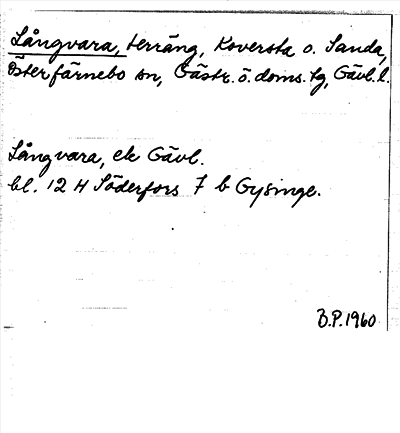 Långvara, terräng, Koversta o. Sanda,
Österfärnebo sn, Gästr. ö. doms. tg, Gävl. l.
Långvara, ek Gävl.
bl. 12 H Söderfors 7 b Gysinge.
B.P. 1960